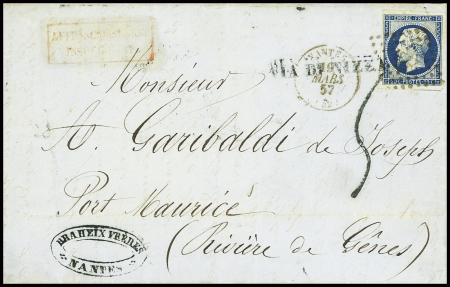 AFFRANCHISSEMENT
INSUFFISANT
EMPIRE FRANC.
NANTES
MARS
57
Monsieur
A. Garibaldi de Joseph
Port Maurice
(Rivière de Gênes)
5
BRAHEIX FRÈRES
NANTES